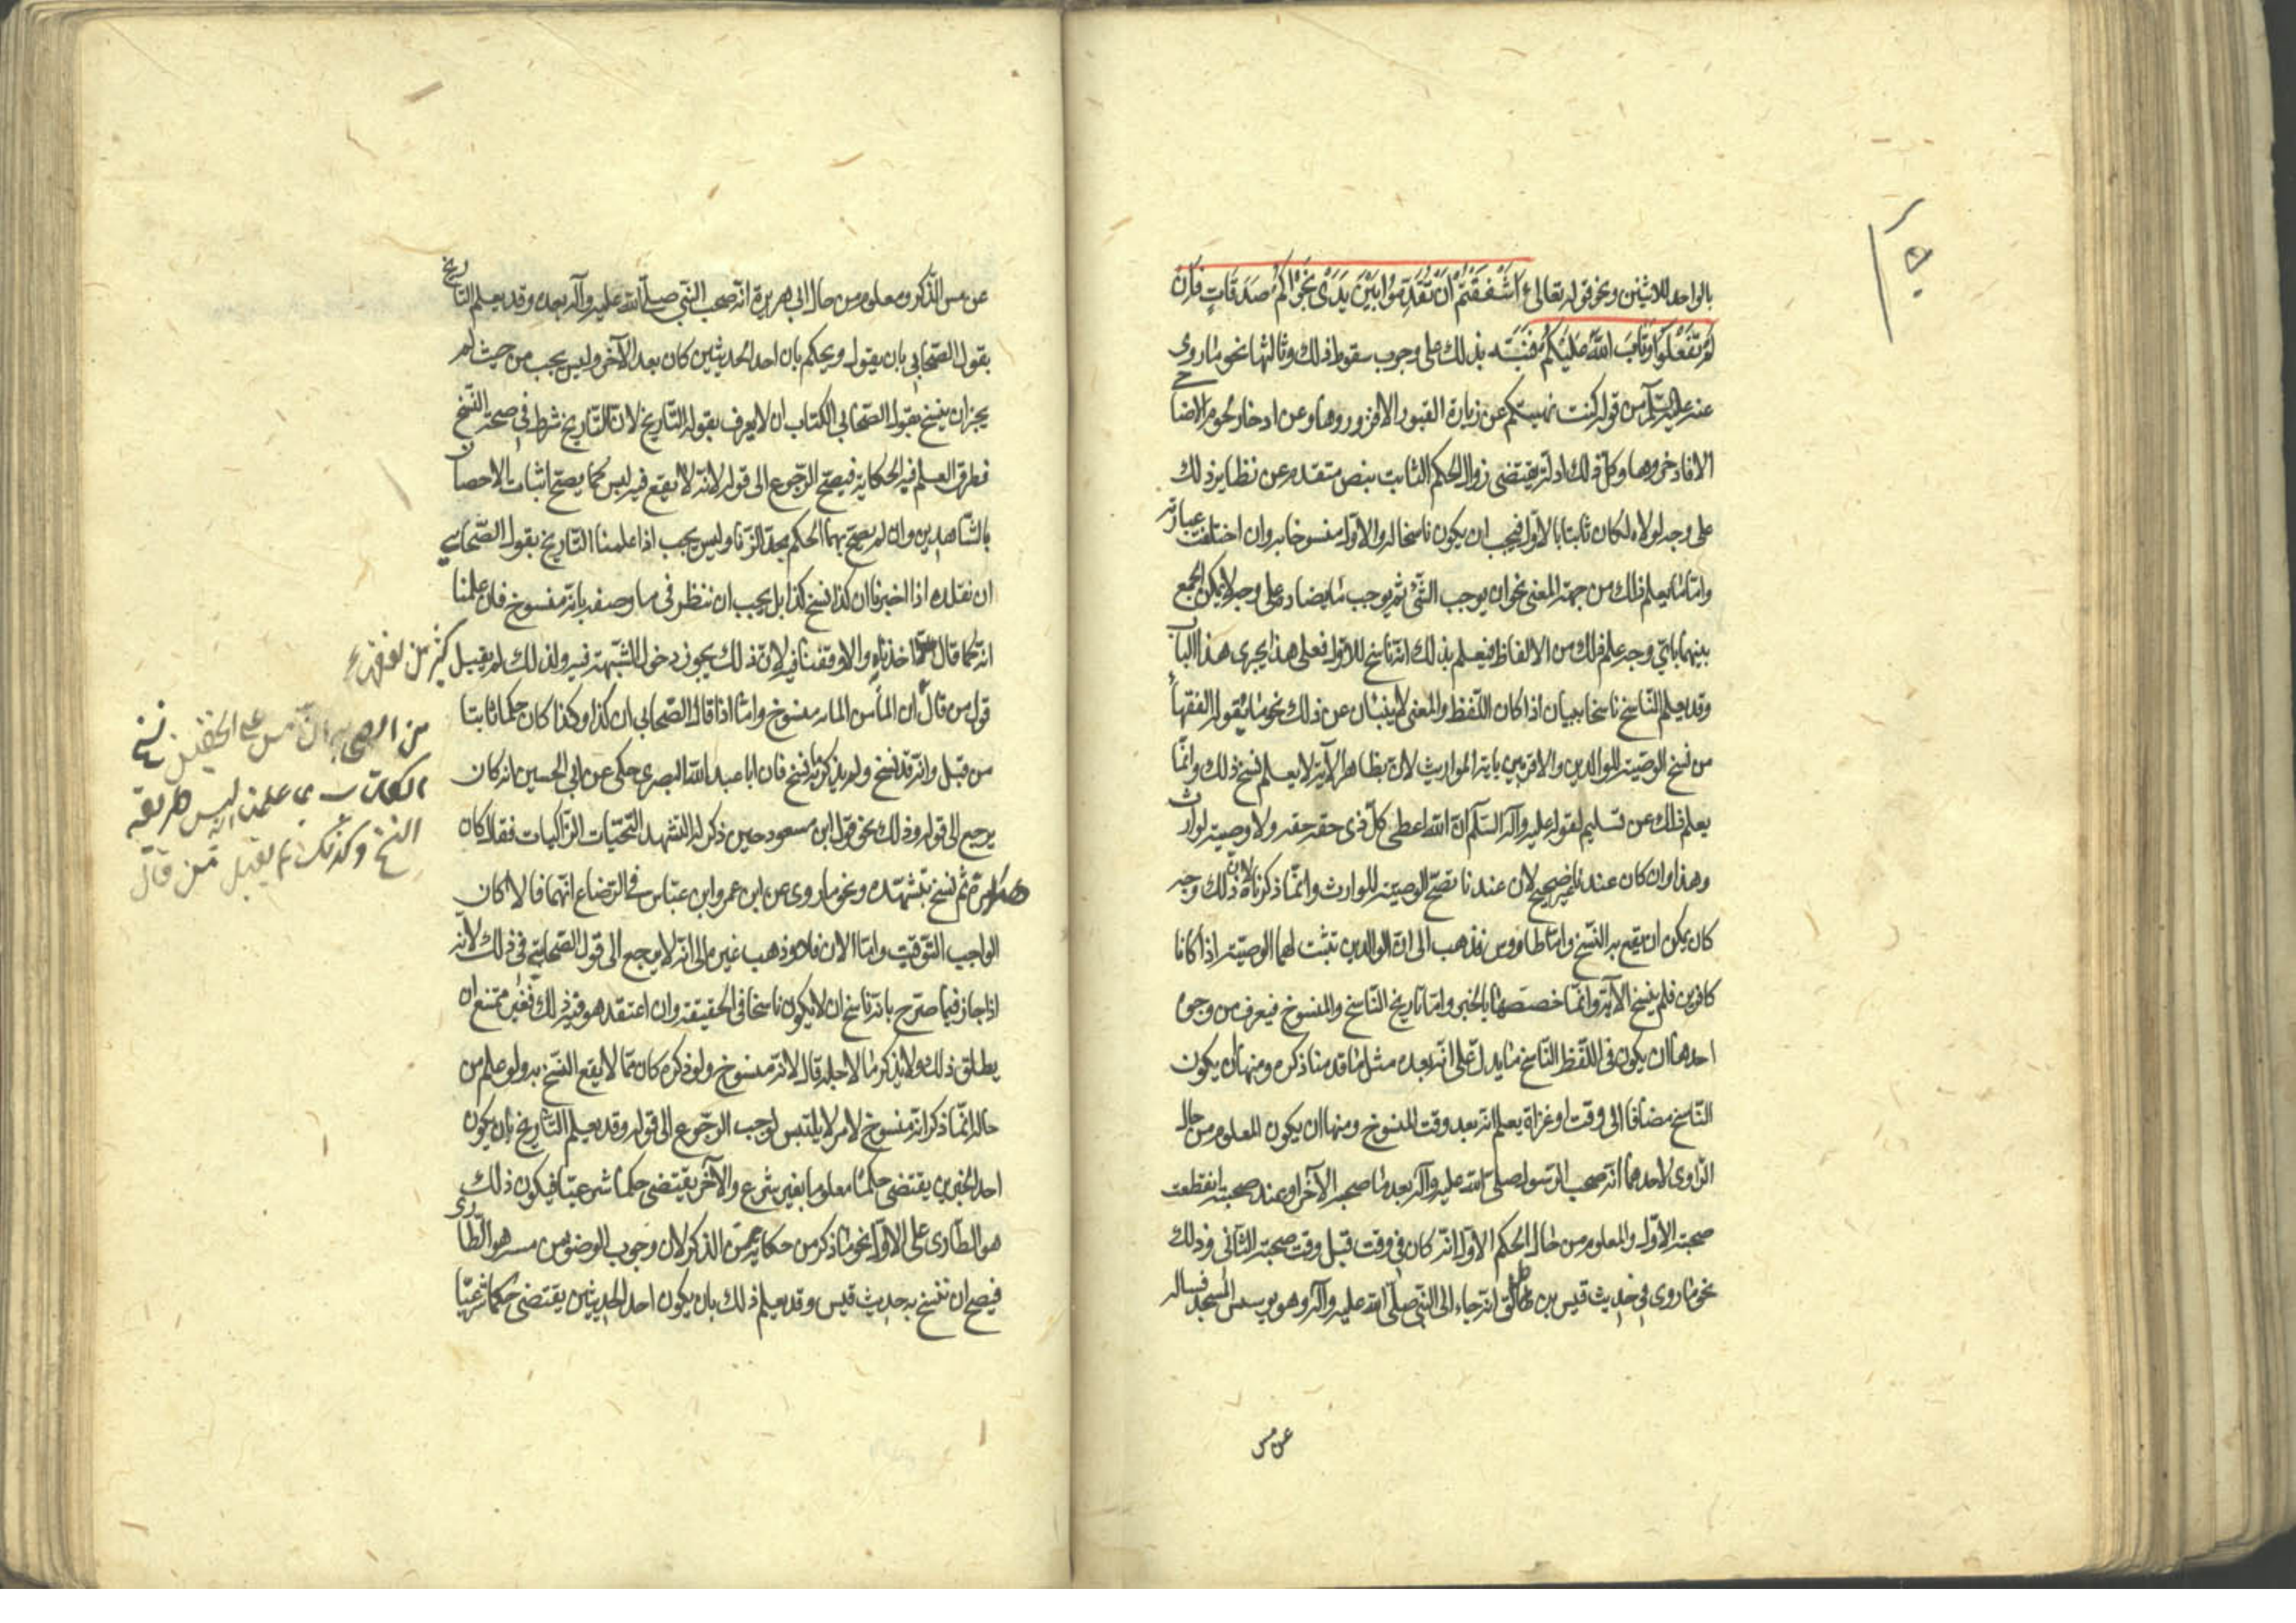 بالواحد للاثنين ونحو قوله تعالى ءَاَشْفَقْتُمْ اَنْ تُقَدِّمُوا بَيْنَ يَدَىْ نَجْوٰاكُمْ صَدَقَاتٍ فَاِنْ
لَمْ تَفْعَلُوا وَتَابَ اللّٰهُ عَلَيْكُمْ فنبّه بذلك على وجوب سقوط ذلك وثالثها نحو ما روى
عنه عليه السّلم من قوله كنت نهيتكم عن زيارة القبور الا فزوروها وعن ادخار لحوم الاضاحي
الا فادخروها وكل ذلك ادلة يقتضى زوال الحكم الثابت بنص متقدم عن نظاير ذلك
على وجه لولاه لكان ثابتا بالاوّل فيجب ان يكون ناسخا له والاوّل منسوخا به وان اختلفت عبارته
وامّا ما يعلم ذلك من جهة المعنى نحو ان يوجب الشّئ ثم يوجب ما يضادّه على وجه لا يمكن الجمع
بينهما باىّ وجه علم ذلك من الالفاظ فيعلم بذلك انّه ناسخ للاوّل فعلى هذا يجرى هذا الباب
وقد يعلم النّاسخ ناسخا ببيان اذا كان اللّفظ والمعنى لا ينبئان عن ذلك نحو ما يقوله الفقهاء
من نسخ الوصيّة للوالدين والاقربين باية المواريث لان بظاهر الآية لا يعلم نسخ ذلك وانّما
يعلم ذلك عن تسليم لقوله عليه وآله السّلم انّ اللّه اعطى كلّ ذى حقّ حقه ولا وصيّة لوارث
وهذا وان كان عندنا غير صحيح لان عندنا تصحّ الوصيّة للوارث وانّما ذكرناه لانّ ذلك وجه
كان يمكن ان يقع به النّسخ وامّا طاووس فذهب الى انّ الوالدين تثبت لهما الوصيّة اذا كانا
كافرين فلم ينسخ الآية وانّما خصّصها بالخبر وامّا تاريخ النّاسخ والمنسوخ فيعرف من وجوه
احدها ان يكون فى اللّفظ النّاسخ ما يدلّ على انّه بعده مثل ما قدمنا ذكره ومنها ان يكون
النّاسخ مضافا الى وقت او غزاة يعلم انّه بعد وقت المنسوخ ومنها ان يكون المعلوم من حال
الرّاوى لاحدهما انّه صحب الرّسول صلّى اللّه عليه وآله بعد ما صحبه الآخر او عند صحبته انقطعت
صحبة الاوّل والمعلوم من حال الحكم الاوّل انّه كان فى وقت قبل وقت صحبة الثّانى وذلك
نحو ما روى فى حديث قيس بن طلق انّه جاء الى النّبى صلّى اللّه عليه وآله وهو يوسس المسجد فساله
عن مس
عن مس الذّكر ومعلوم من حال ابى هريرة انّه صحب النّبى صلّى اللّه عليه وآله بعده وقد يعلم التّاريخ
بقول الصّحابى بان يقول ويحكم بان احد الحديثين كان بعد الآخر وليس يجب من حيث لم
يجز ان ينسخ بقول الصّحابى الكتاب ان لا يعرف بقوله التّاريخ لانّ التّاريخ شرط فى صحة النّسخ
فطرق العلم فيه الحكاية فيصحّ الرّجوع الى قوله لانّه لا يقع فيه لبس كما يصحّ اثبات الاحصان
بالشّاهدين وان لم يصحّ بهما الحكم بحدّ الزّنا وليس يجب اذا علمنا التّاريخ بقول الصّحابى
ان نقلّده اذا اخبرنا ان كذا نسخ كذا بل يجب ان ننظر فى ما وصفه بانّه منسوخ فان علمنا
انّه كما قال اخذناه والا وقفنا فيه لانّ ذلك يجوز دخول الشّبهة فيه ولذلك لم يقبل كثير من الفقهاء
قول من قال ان الماء من الماء منسوخ وامّا اذا قال الصّحابى ان كذا وكذا كان حكما ثابتا
من قبل وانّه قد نسخ ولم يذكر ما به نسخ فان ابا عبد اللّه البصرى حكى عن ابى الحسين انّه كان
يرجع الى قوله وذلك نحو قول ابن مسعود حين ذكر له التّشهد التّحيّات الزّاكيات فقال كان
هذا مرّة ثم نسخ بتشهّده ونحو ما روى عن ابن عمر وابن عبّاس فى الرّضاع انّهما قالا كان
الواجب التّوقيت وامّا الان فلا وذهب غيره الى انّه لا يرجع الى قول الصّحابى فى ذلك لانّه
اذا جاز فيما صرّح بانّه ناسخ ان لا يكون ناسخا فى الحقيقة وان اعتقد هو فيه ذلك فغير ممتنع ان
يطلق ذلك ولا يذكر ما لاجله قال لانّه منسوخ ولو ذكره كان ممّا لا يقع النّسخ به ولو علم من
حاله انّما ذكر انّه منسوخ لامر لا يلتبس لوجب الرّجوع الى قوله وقد يعلم التّاريخ بان يكون
احد الخبرين يقتضى حكما معلوما بغير شرع والآخر يقتضى حكما شرعيّا فيكون ذلك
هو الطّارى على الاوّل نحو ما ذكر من حكاية مس الذكر لان وجوب الوضوء من مسه هو الطّارى
فيصح ان ننسخ به حديث قيس وقد يعلم ذلك بان يكون احد الحديثين يقتضى حكما شرعيّا
من الصحابه انّ مس على الخفّين نسخ
الكتاب علمنا انّه ليس طريقة
النسخ وكذلك لم يقبل من قال